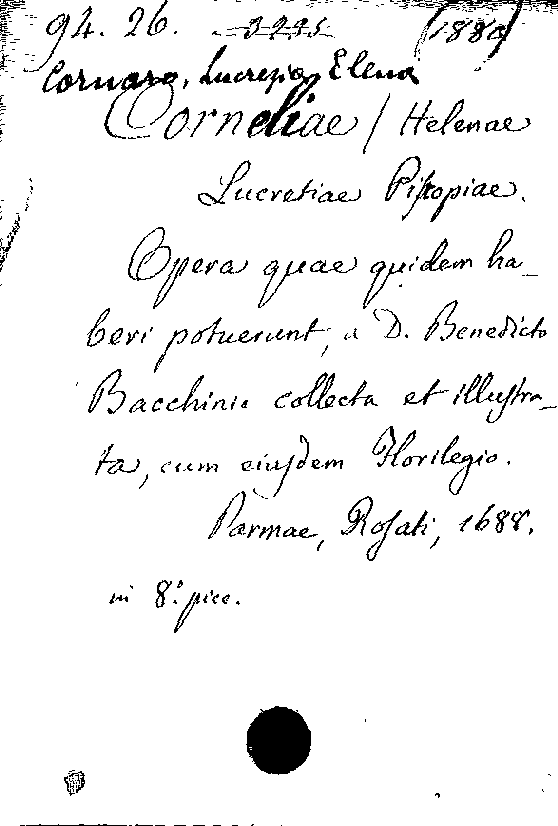 94. 26. 3295 (1880)
Cornaro, Lucrezia Elena
Corneliae / Helenae
Lucretiae Piscopiae.
Opera quae quidem ha_
beri potuerunt, a D. Benedicto
Bacchinio collecta et illustra_
ta, cum eiusdem Florilegio.
Parmae, Rosati, 1688.
in 8.° picc.